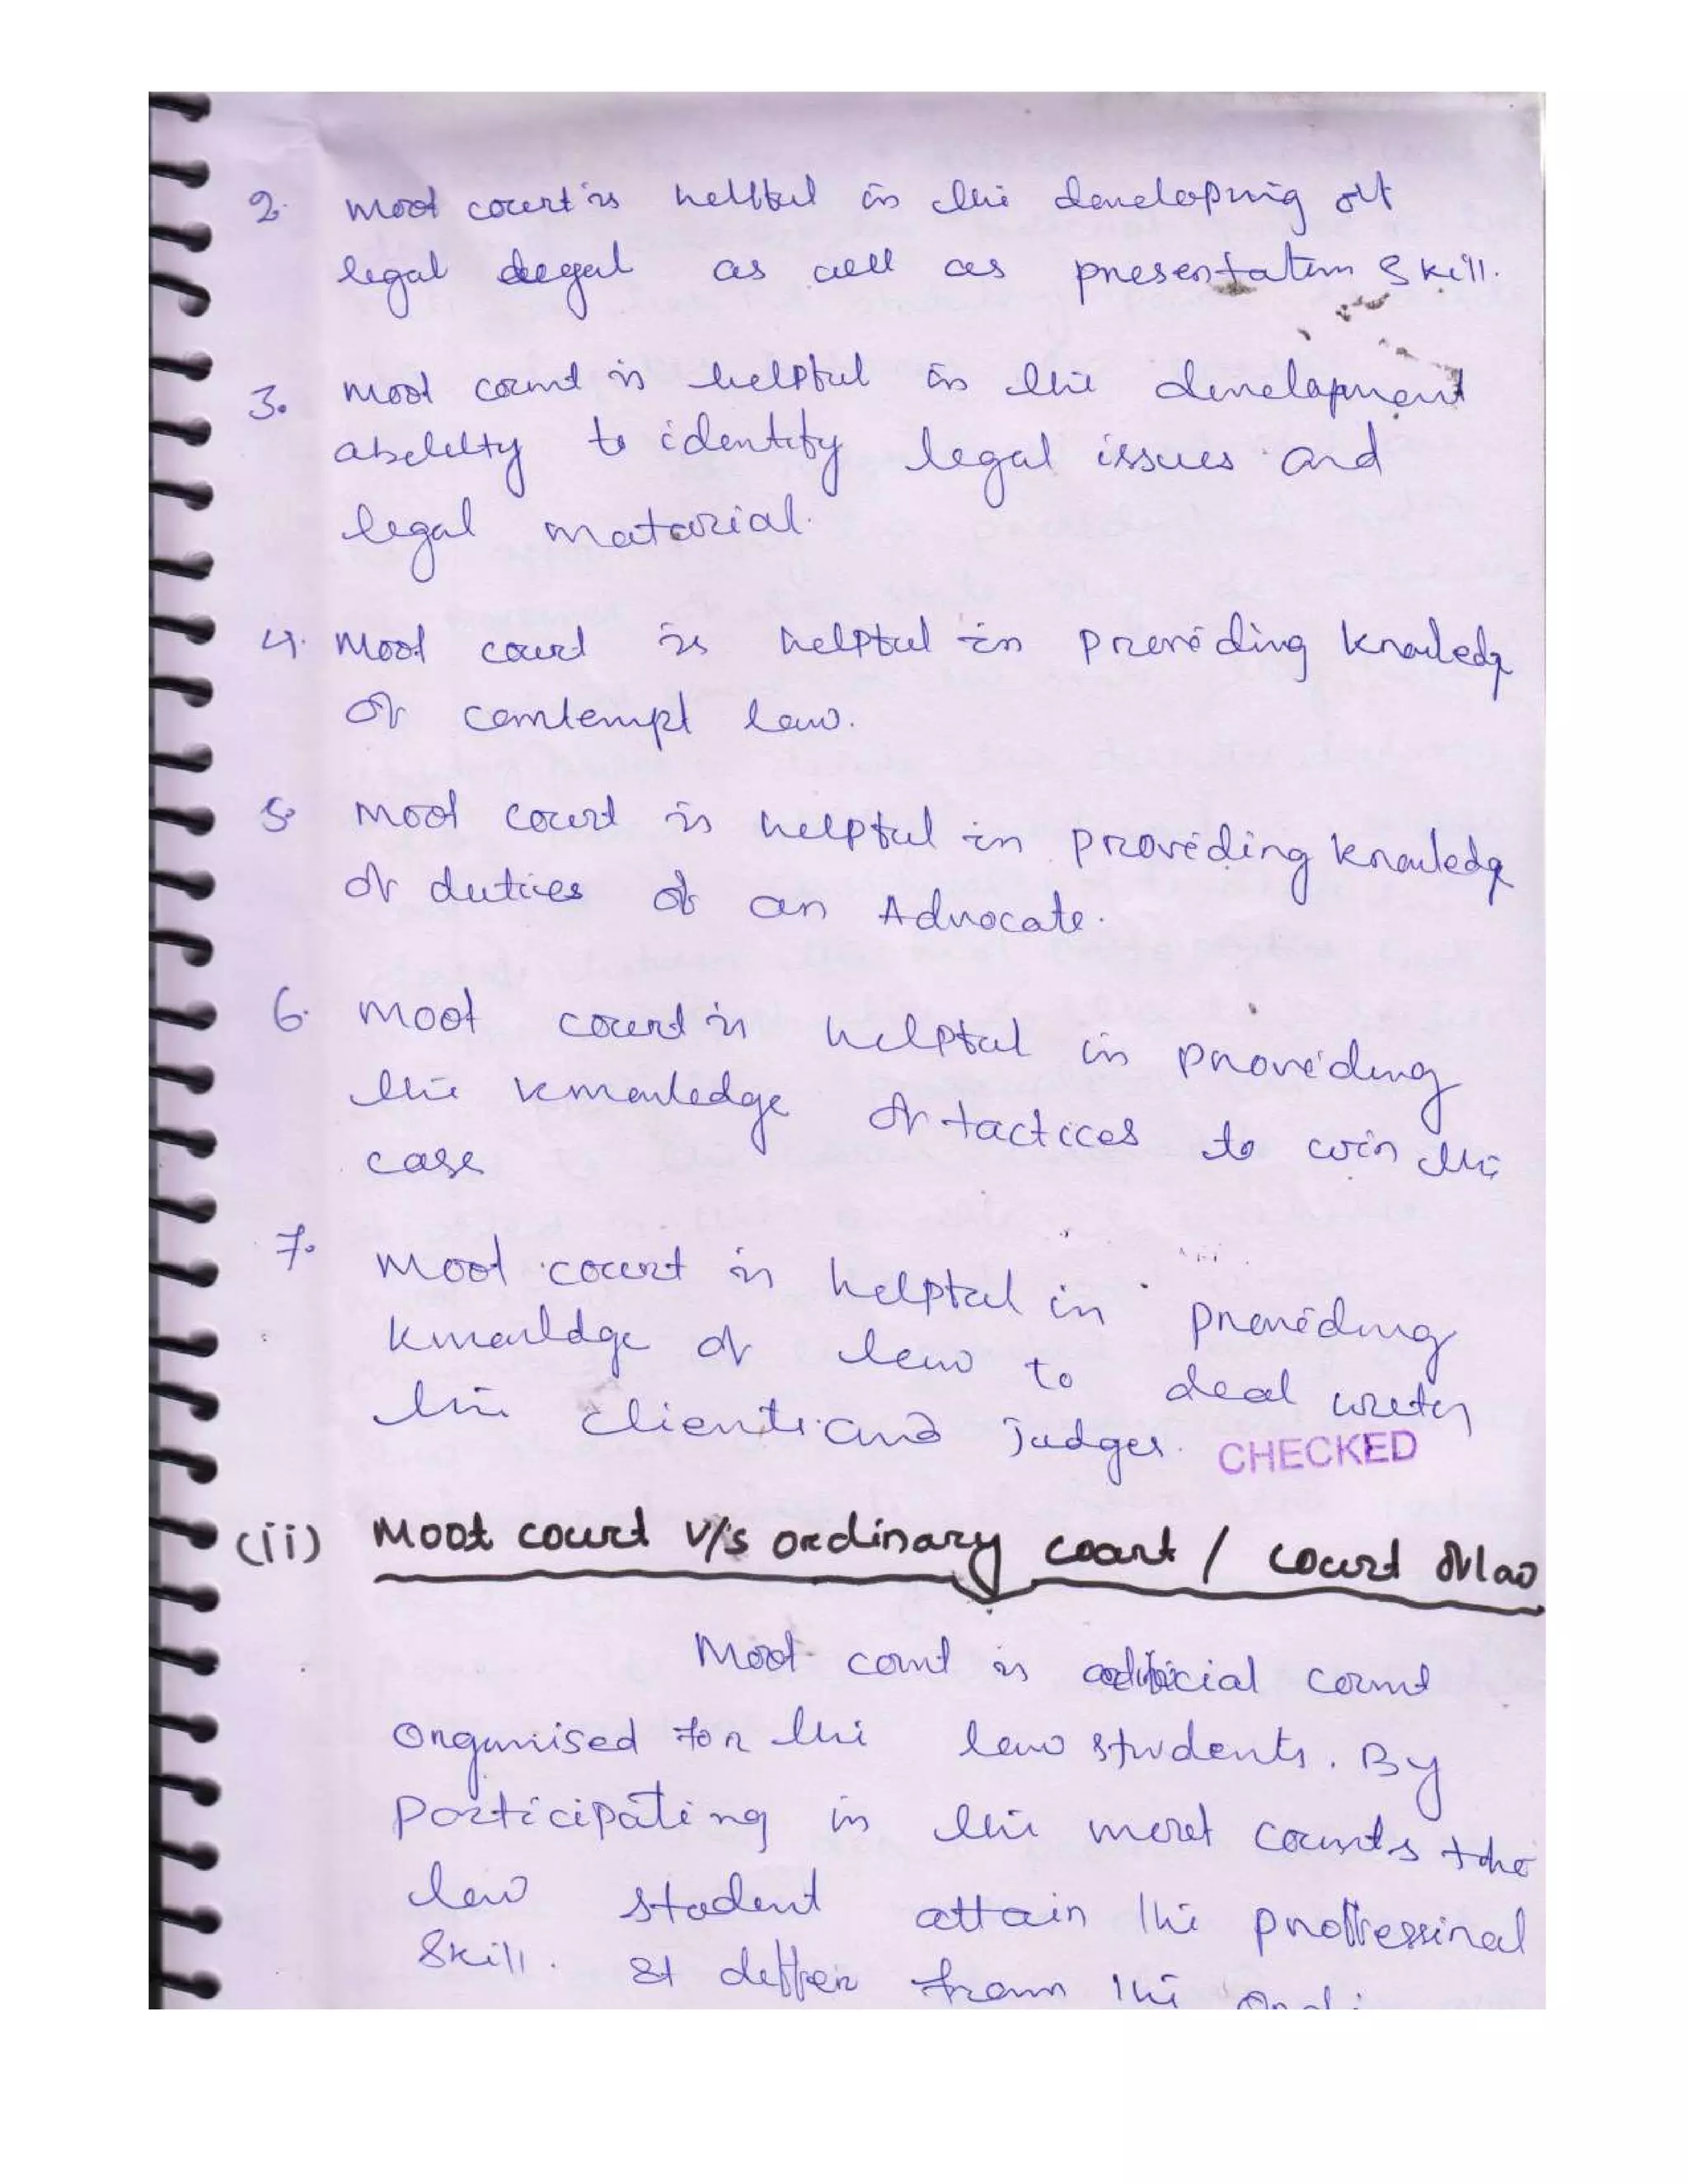 2. Moot court is helpful in the developing of
legal as well as presentation skill.
3. Moot court is helpful in the development
ability to identify legal issues and
legal material.
4. Moot court is helpful in providing knowledge
of contempt law.
5. Moot court is helpful in providing knowledge
of duties of an Advocate.
6. Moot court is helpful in providing
the knowledge of tactices to win the
case
7. Moot court is helpful in providing
knowldge of law to deal with
the clients and judges.
CHECKED
(ii) Moot court v/s ordinary court / court of law
Moot court is court
organised for the law students. By
participating in the moot courts the
law student attain the proffessinal
skill. It differ from the